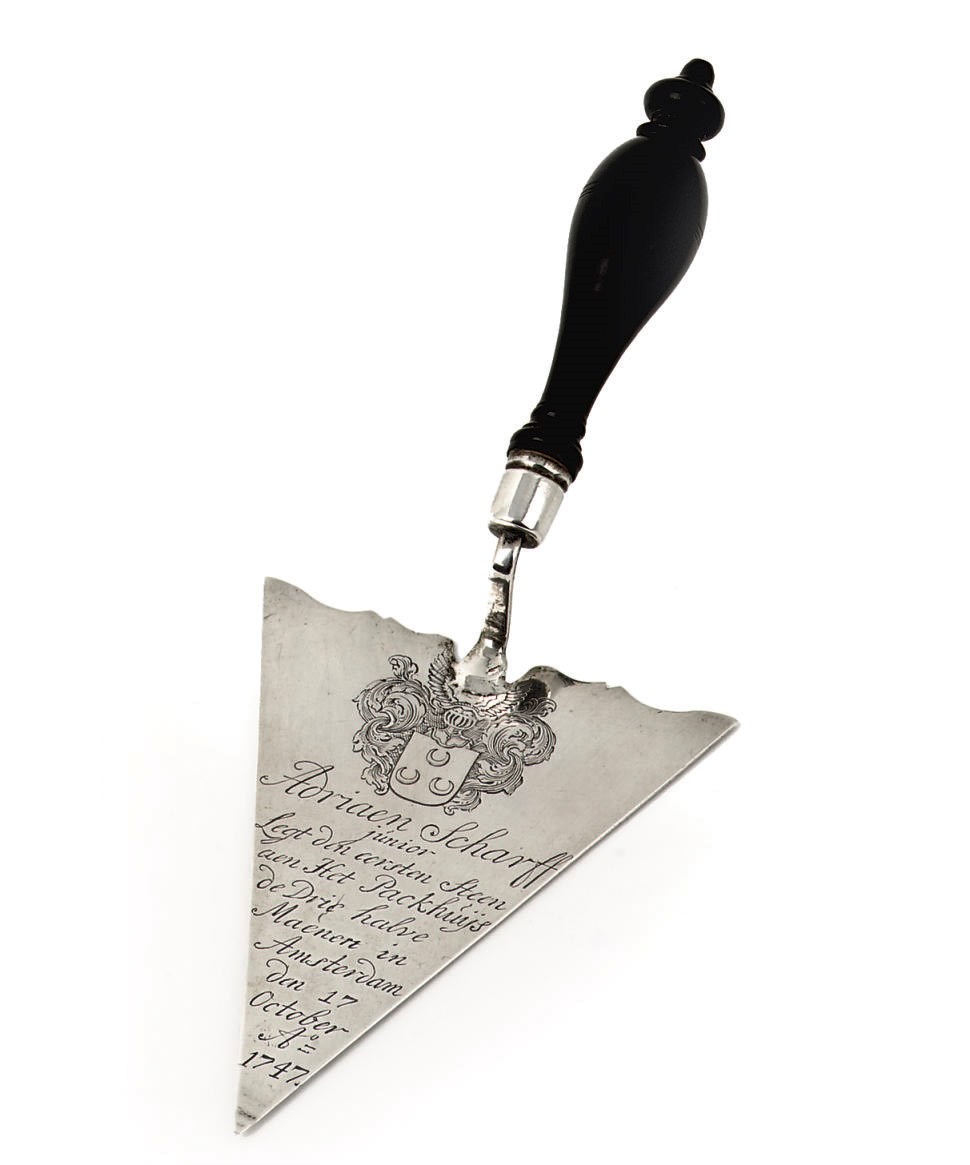 Adriaen Scharff
junior
Legt den eersten Steen
aen Het Packhuÿs
de Drie halve
Maenen in
Amsterdam
den 17
October
A°=
1747.